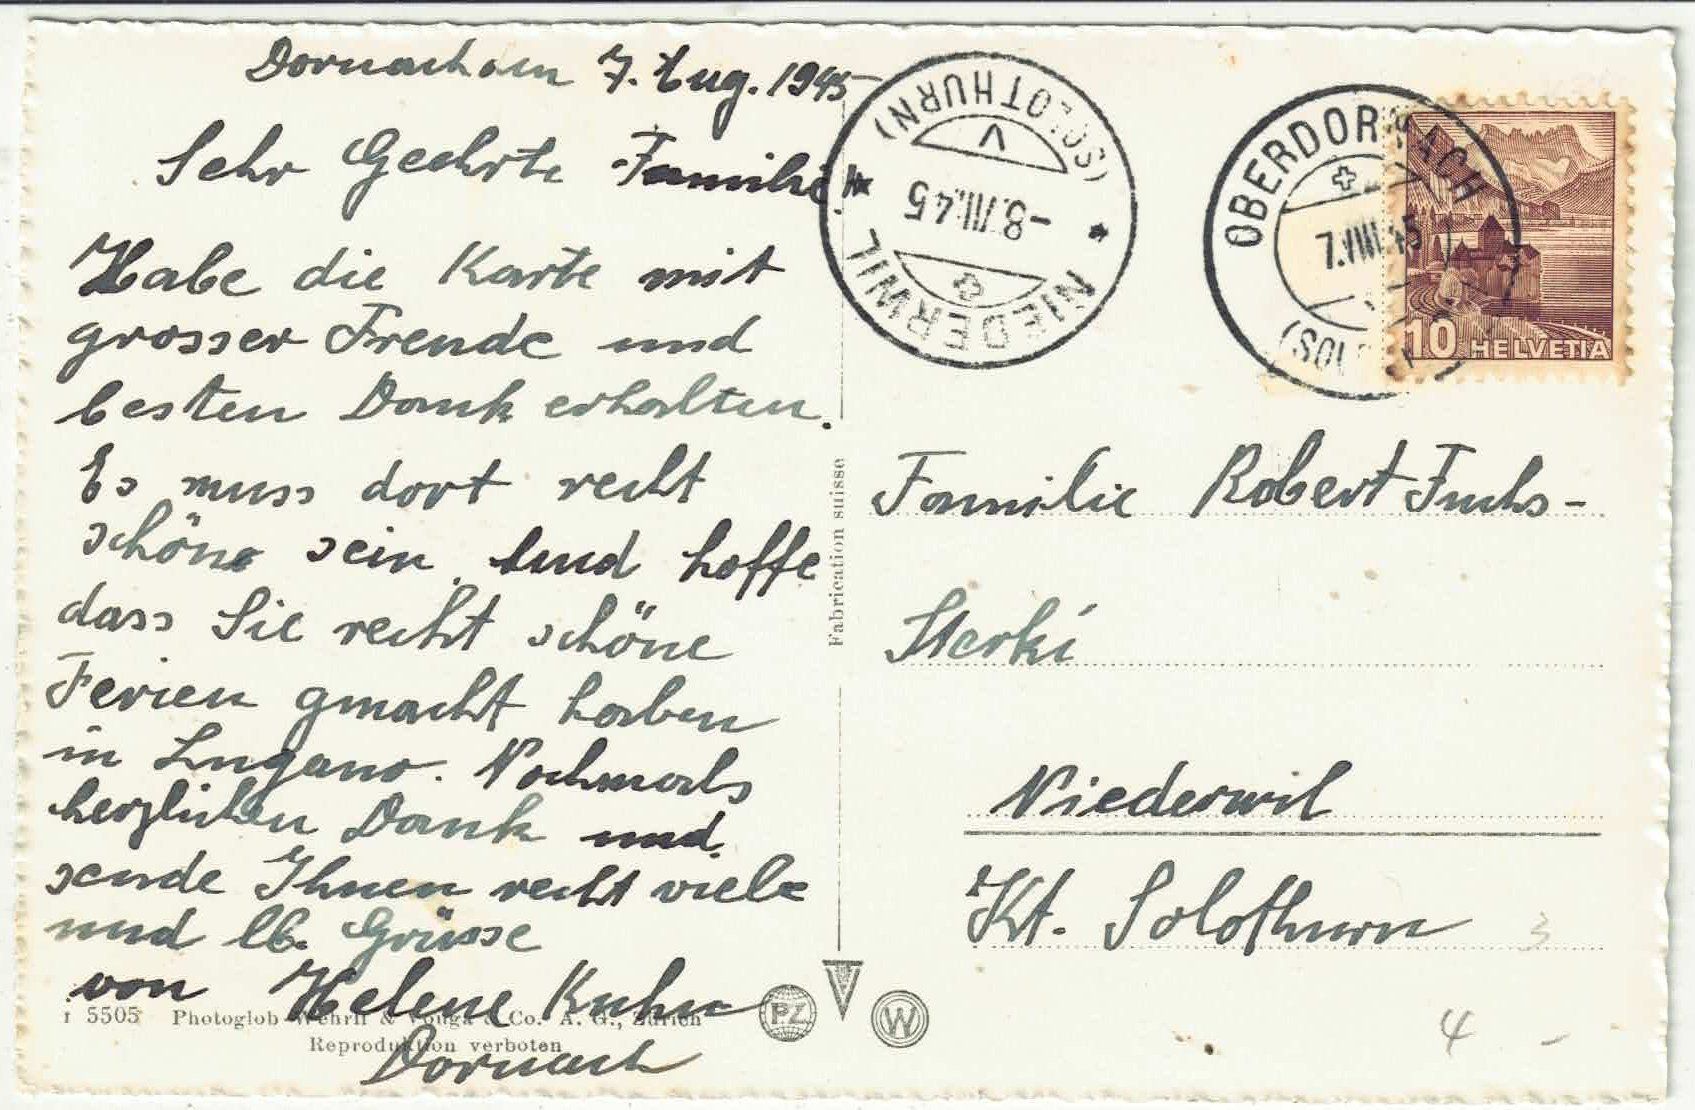 Dornach den 7. Aug. 1945
Sehr Geehrte Familie.
Habe die Karte mit
grosser Freude und
besten Dank erhalten.
Es muss dort recht
schöne sein. Und hoffe
dass Sie recht schöne
Ferien gmacht haben
in Lugano. Nochmals
herzlichen Dank und
sende Ihnen recht viele
und lb. Grüsse
von Helene Kuhn
Dornach
5505 Photoglob-Wehrli & Vouga & Co. A. G., Zürich
Reproduktion verboten
Fabrication suisse
PZ
W
NIEDERWIL
(SOLOTHURN)
V
-8.VIII.45
OBERDORNACH
7.VIII.45
(SOL
10 HELVETIA
Familie Robert Fuchs-
Sterki
Niederwil
Kt. Solothurn
3
4 -